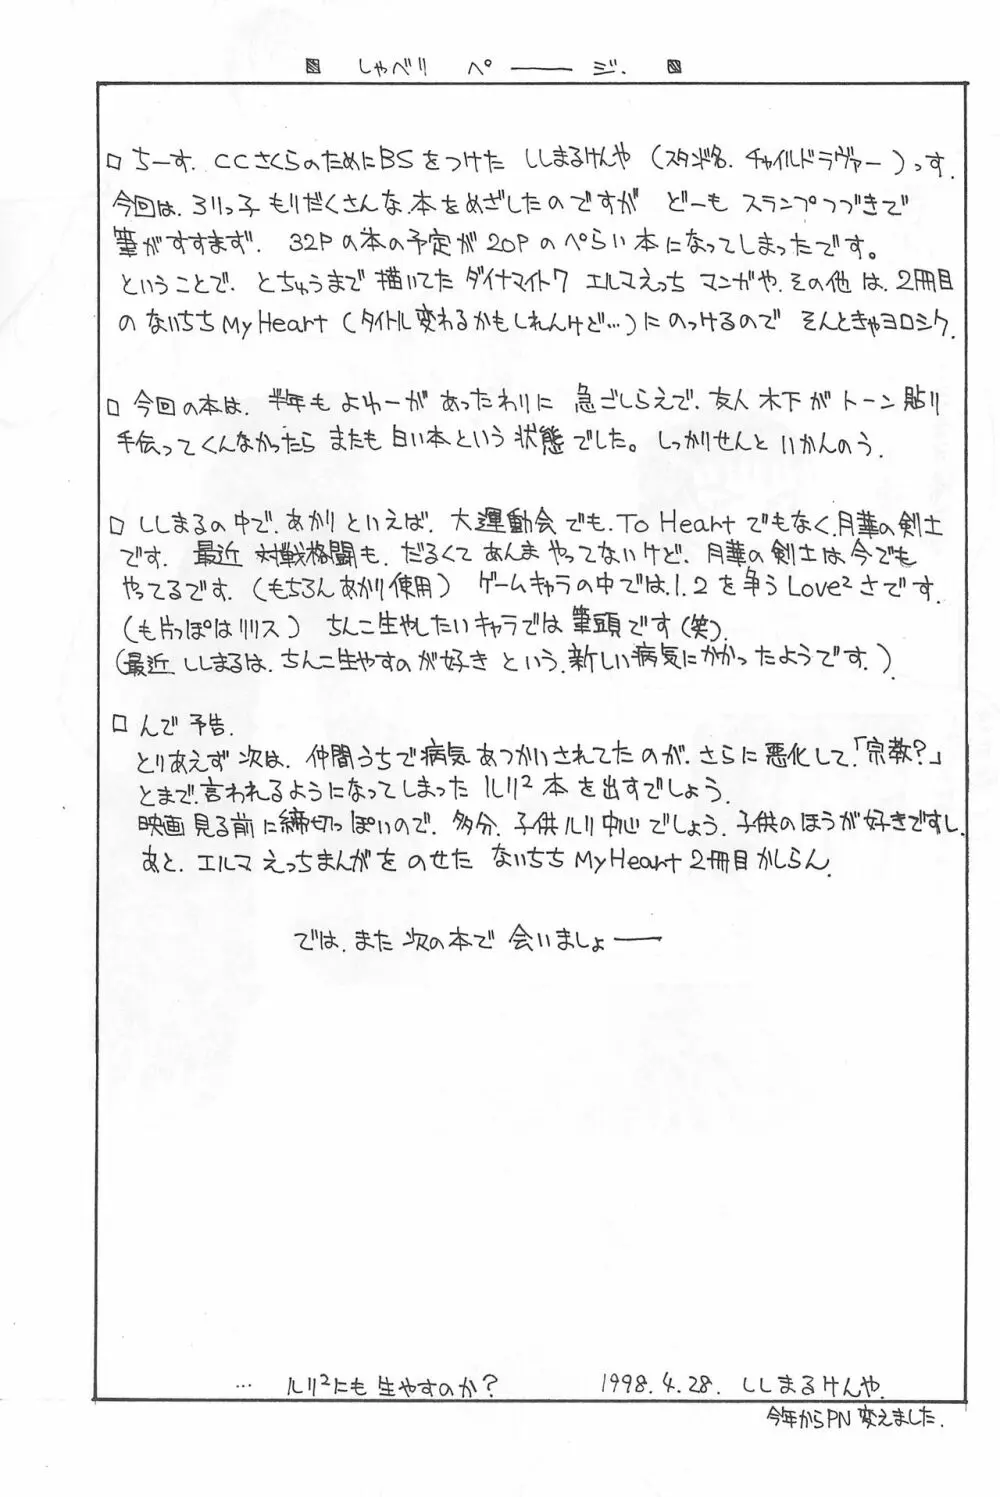 しゃべり ペ――ジ.
□ ちーす. CCさくらのためにBSをつけた ししまるけんや (スタンド名. チャイルドラヴァー)っす.
今回は、ろりっ子もりだくさんな本をめざしたのですが どーも スランプつづきで
筆がすすまず. 32Pの本の予定が20Pのぺらい本になってしまったです。
ということで. とちゅうまで描いてた ダイナマイト7 エルマえっち マンガや.その他は.2冊目
のないちち My Heart (タイトル変わるかもしれんけど…)にのっけるので そんときゃヨロシク.
□ 今回の本は. 半年も よゆーがあったわりに 急ごしらえで. 友人 木下が トーン貼り
手伝ってくんなかったら またも白い本という状態でした。しっかりせんと いかんのう.
□ ししまるの中で.あかりといえば. 大運動会でも. To Heartでもなく.月華の剣士
です. 最近 対戦格闘も. だるくて あんま やってないけど. 月華の剣士は今でも
やってるです.(もちろんあかり使用) ゲームキャラの中では.1.2を争うLove²さです.
(も片っぽはリリス) ちんこ生やしたいキャラでは筆頭です(笑).
(最近 ししまるは.ちんこ生やすのが好き という.新しい病気にかかったようです.)
□ んで 予告.
とりあえず次は. 仲間うちで病気あつかいされてたのが.さらに悪化して.「宗教?」
とまで.言われるようになってしまった ルリ² 本を出すでしょう.
映画見る前に締切っぽいので. 多分. 子供ルリ中心でしょう. 子供のほうが好きですし.
あと. エルマ えっちまんがをのせた ないちち My Heart 2冊目かしらん.
では.また次の本で 会いましょ――
… ルリ²にも生やすのか? 1998.4.28. ししまるけんや.
今年からPN変えました.